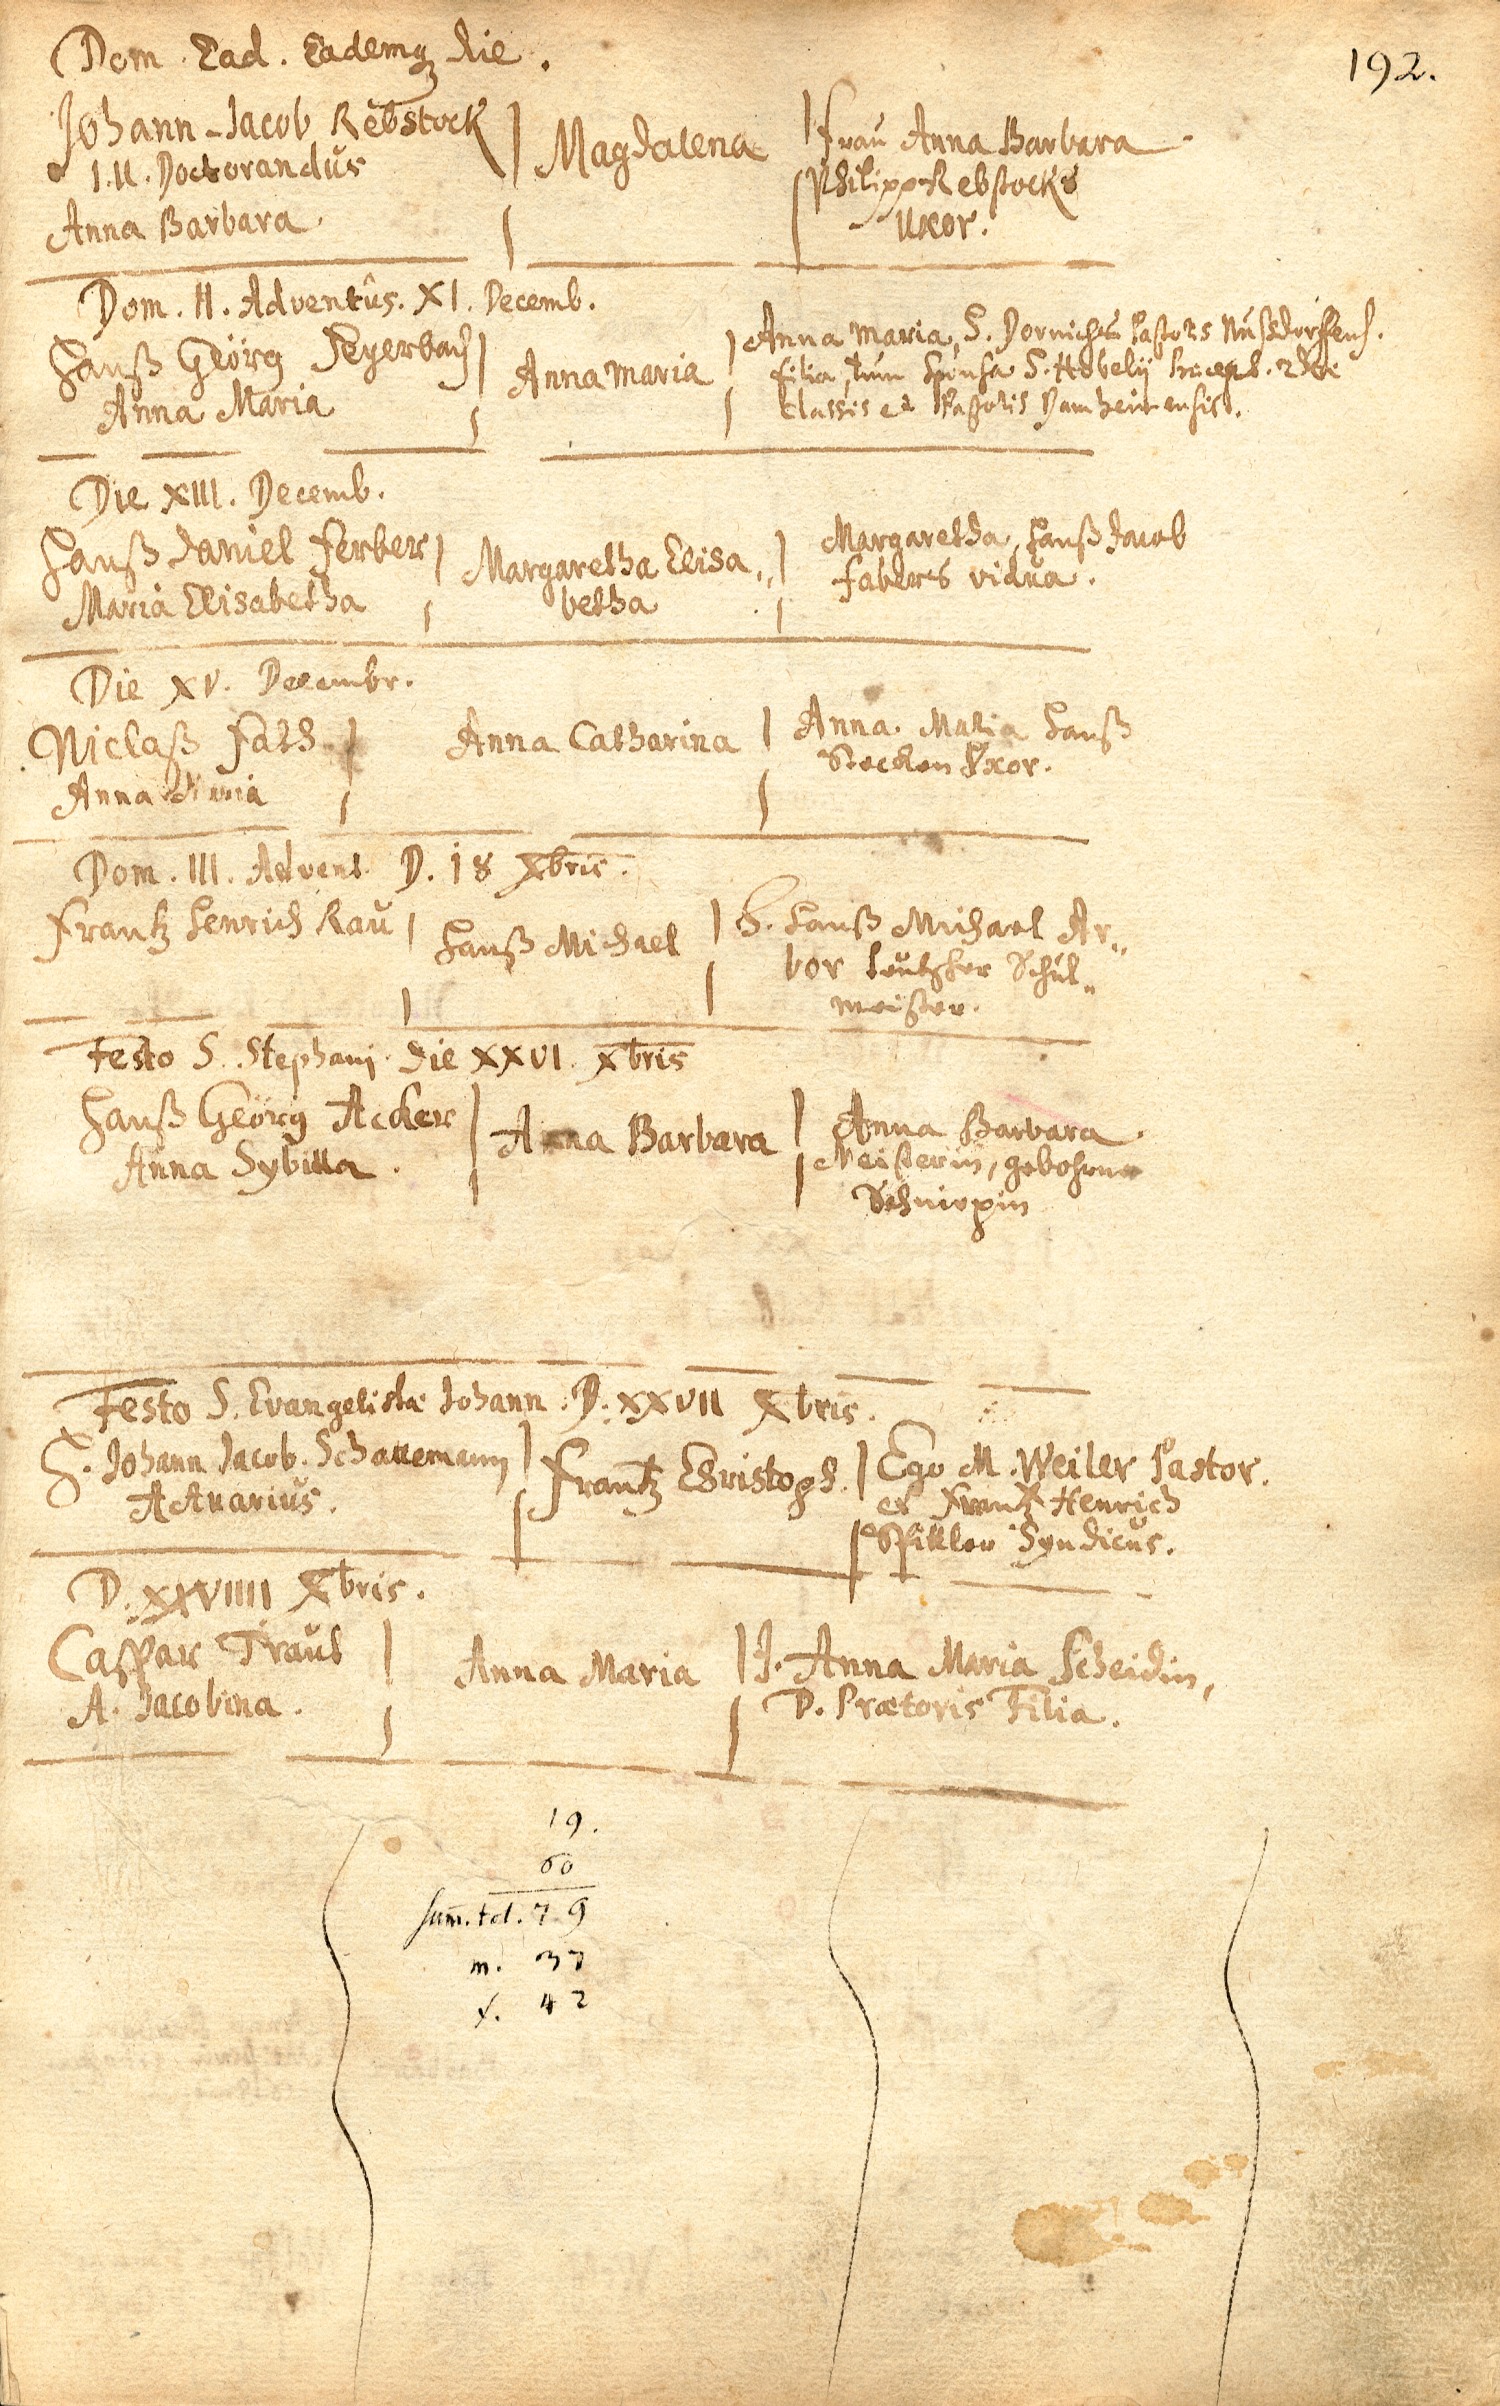 192.
Dom. Ead. Eademq die.
Johann-Jacob Rebstock
I.U. Doctorandus
Anna Barbara
Magdalena
Frau Anna Barbara
Philipp Rebstocks
Uxor.
Dom. II. Adventûs. XI. Decemb.
Hanß Geörg Feyerbach
Anna Maria
Anna Maria
Anna Maria, H. Dornichs Pastoris Nußdorffens.
filia, tum sponsa H. Hobelij Præcept. 2dæ
Classis et Pastoris Damheimensis.
Die XIII. Decemb.
Hanß Daniel Ferber
Maria Elisabetha
Margaretha Elisa„
betha
Margaretha, Hanß Jacob
Fabers vidua.
Die XV. Decembr.
Niclaß Fath
Anna Maria
Anna Catharina
Anna Maria Hanß
Stecken Uxor.
Dom. III. Advent. D. 18 Xbris.
Frantz Henrich Rau
Hanß Michael
H. Hanß Michael Ar„
bor Teutscher Schul„
meister.
Festo S. Stephani die XXVI. Xbris
Hanß Geörg Acker
Anna Sybilla.
Anna Barbara
Anna Barbara
Meisterin, gebohrne
Schnirpin
Festo S. Evangelistæ Johann. D. XXVII Xbris.
H. Johann Jacob Schattemann
Actuarius.
Frantz Christoph.
Ego M. Weiler Pastor.
et Frantz Henrich
Syndicus.
D. XXVIIII Xbris.
Caspar Traut
A. Jacobina.
Anna Maria
J. Anna Maria Scheidin,
D. Prætoris Filia.
19.
60
sum. tot. 79
m. 37
f. 42